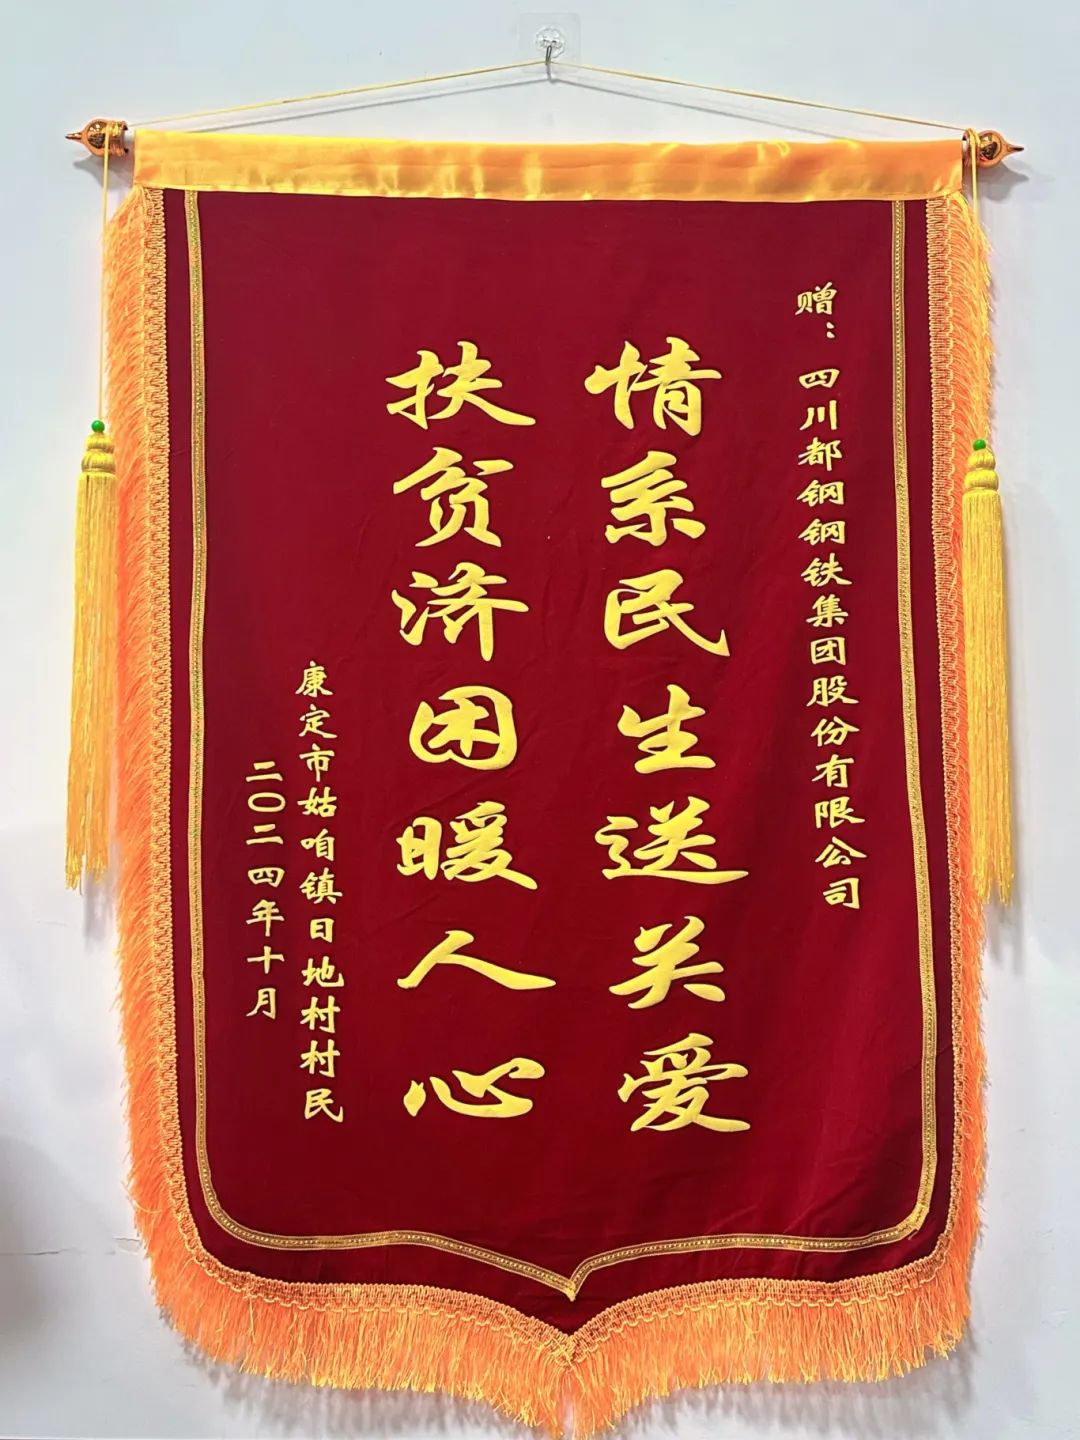 赠：四川都钢钢铁集团股份有限公司
情系民生送关爱
扶贫济困暖人心
康定市姑咱镇日地村村民
二〇二四年十月